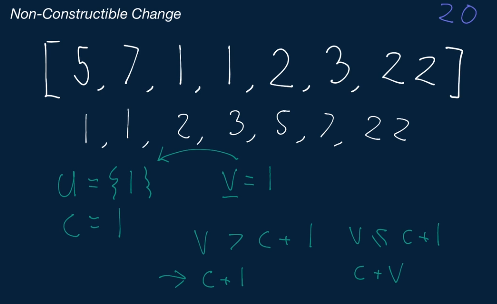 Non-Constructible Change
20
[5, 7, 1, 1, 2, 3, 22]
1, 1, 2, 3, 5, 7, 22
U = {1} V = 1
C = 1
V > C + 1 V ≤ C + 1
→ C + 1 C + V